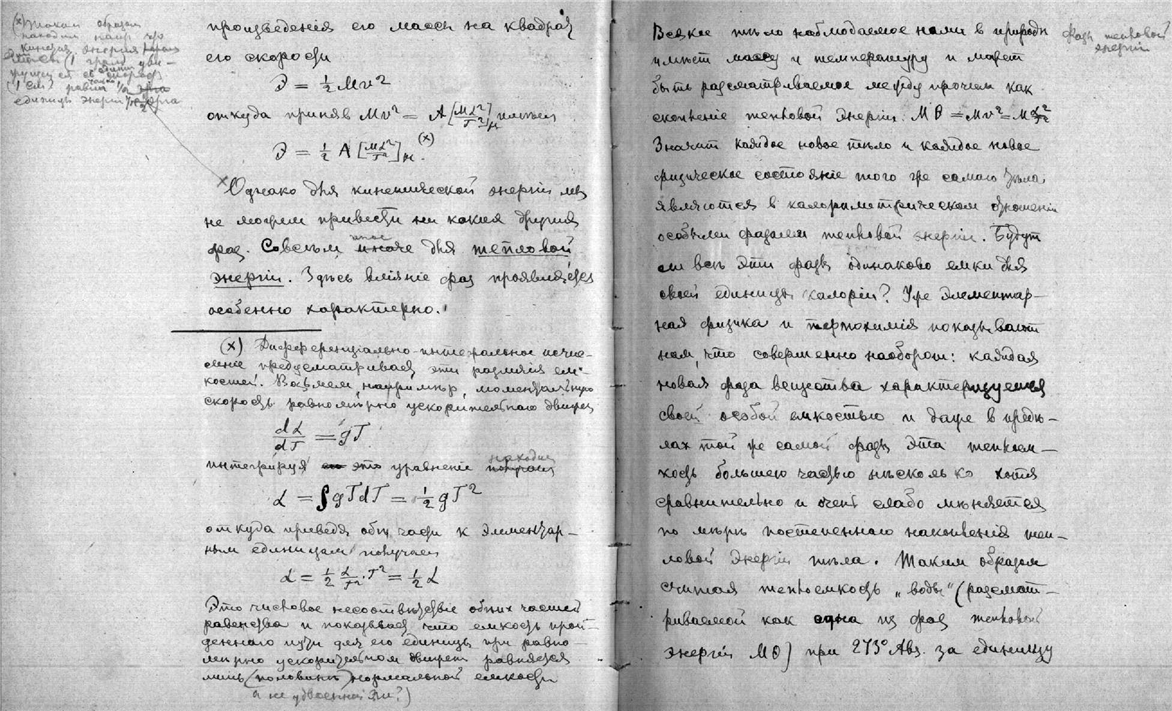 (x) Таким образом
находим напр. что
кинетич. энергия
массы (1 грамм)
(1 см) равна 1/2
единицы энергии
произведенія его массы на квадрат
его скорости
Э = ½ Mv²
откуда приняв Mv² = A[ML²/T²] имеем
Э = ½ A [ML²/T²] (x)
Однако для кинетической энергіи мы
не можем привести ни каких других
фаз. Совсем иное для тепловой
энергіи. Здесь вліяніе фаз проявляется
особенно характерно.
(x) Дифференціально-интегральное исчис-
леніе предусматривает эти различія ем-
кости. Возьмем, наприм'ър, моментальную
скорость равном'ърно ускорительнаго движен.
dL/dT = gT
интегрируя это уравненіе находим
L = ∫gTdT = ½ gT²
откуда приведя общ. части к элементар-
ным единицам получаем
L = ½ L/T² · T² = ½ L
Это числовое несоотвътствіе обоих частей
равенства и показывает что емкость прой-
деннаго пути для его единицы при равно-
мърно ускорительном движен. равняется
лишь (половинъ) нормальной емкости
а не удвоенной ли?)
Всякое тъло наблюдаемое нами в природъ
имъет массу и температуру и может
быть разсматриваемое между прочем как
скопленіе тепловой энергіи. Mθ = Mv² = ML²/T²
Значит каждое новое тъло и каждое новое
физическое состояніе того же самаго тъла
являются в калориметрическом отношеніи
особыми фазами тепловой энергіи. Будут
ли всъ эти фазы одинаково емки для
своей единицы калоріи? Уже элементар-
ная физика и термохимія показывают
нам, что совершенно наоборот: каждая
новая фаза вещества характеризуется
своей особой емкостью и даже в предъ-
лах той же самой фазы эта теплоем-
кость большею частью нъсколько хотя
сравнительно и очень слабо мъняется
по мъръ постепеннаго накопленія теп-
ловой энергіи тъла. Таким образом
считая теплоемкость „воды" (разсмат-
риваемой как одна из фаз тепловой
энергіи Mθ) при 273° Абз. за единицу
фазы тепловой
энергіи